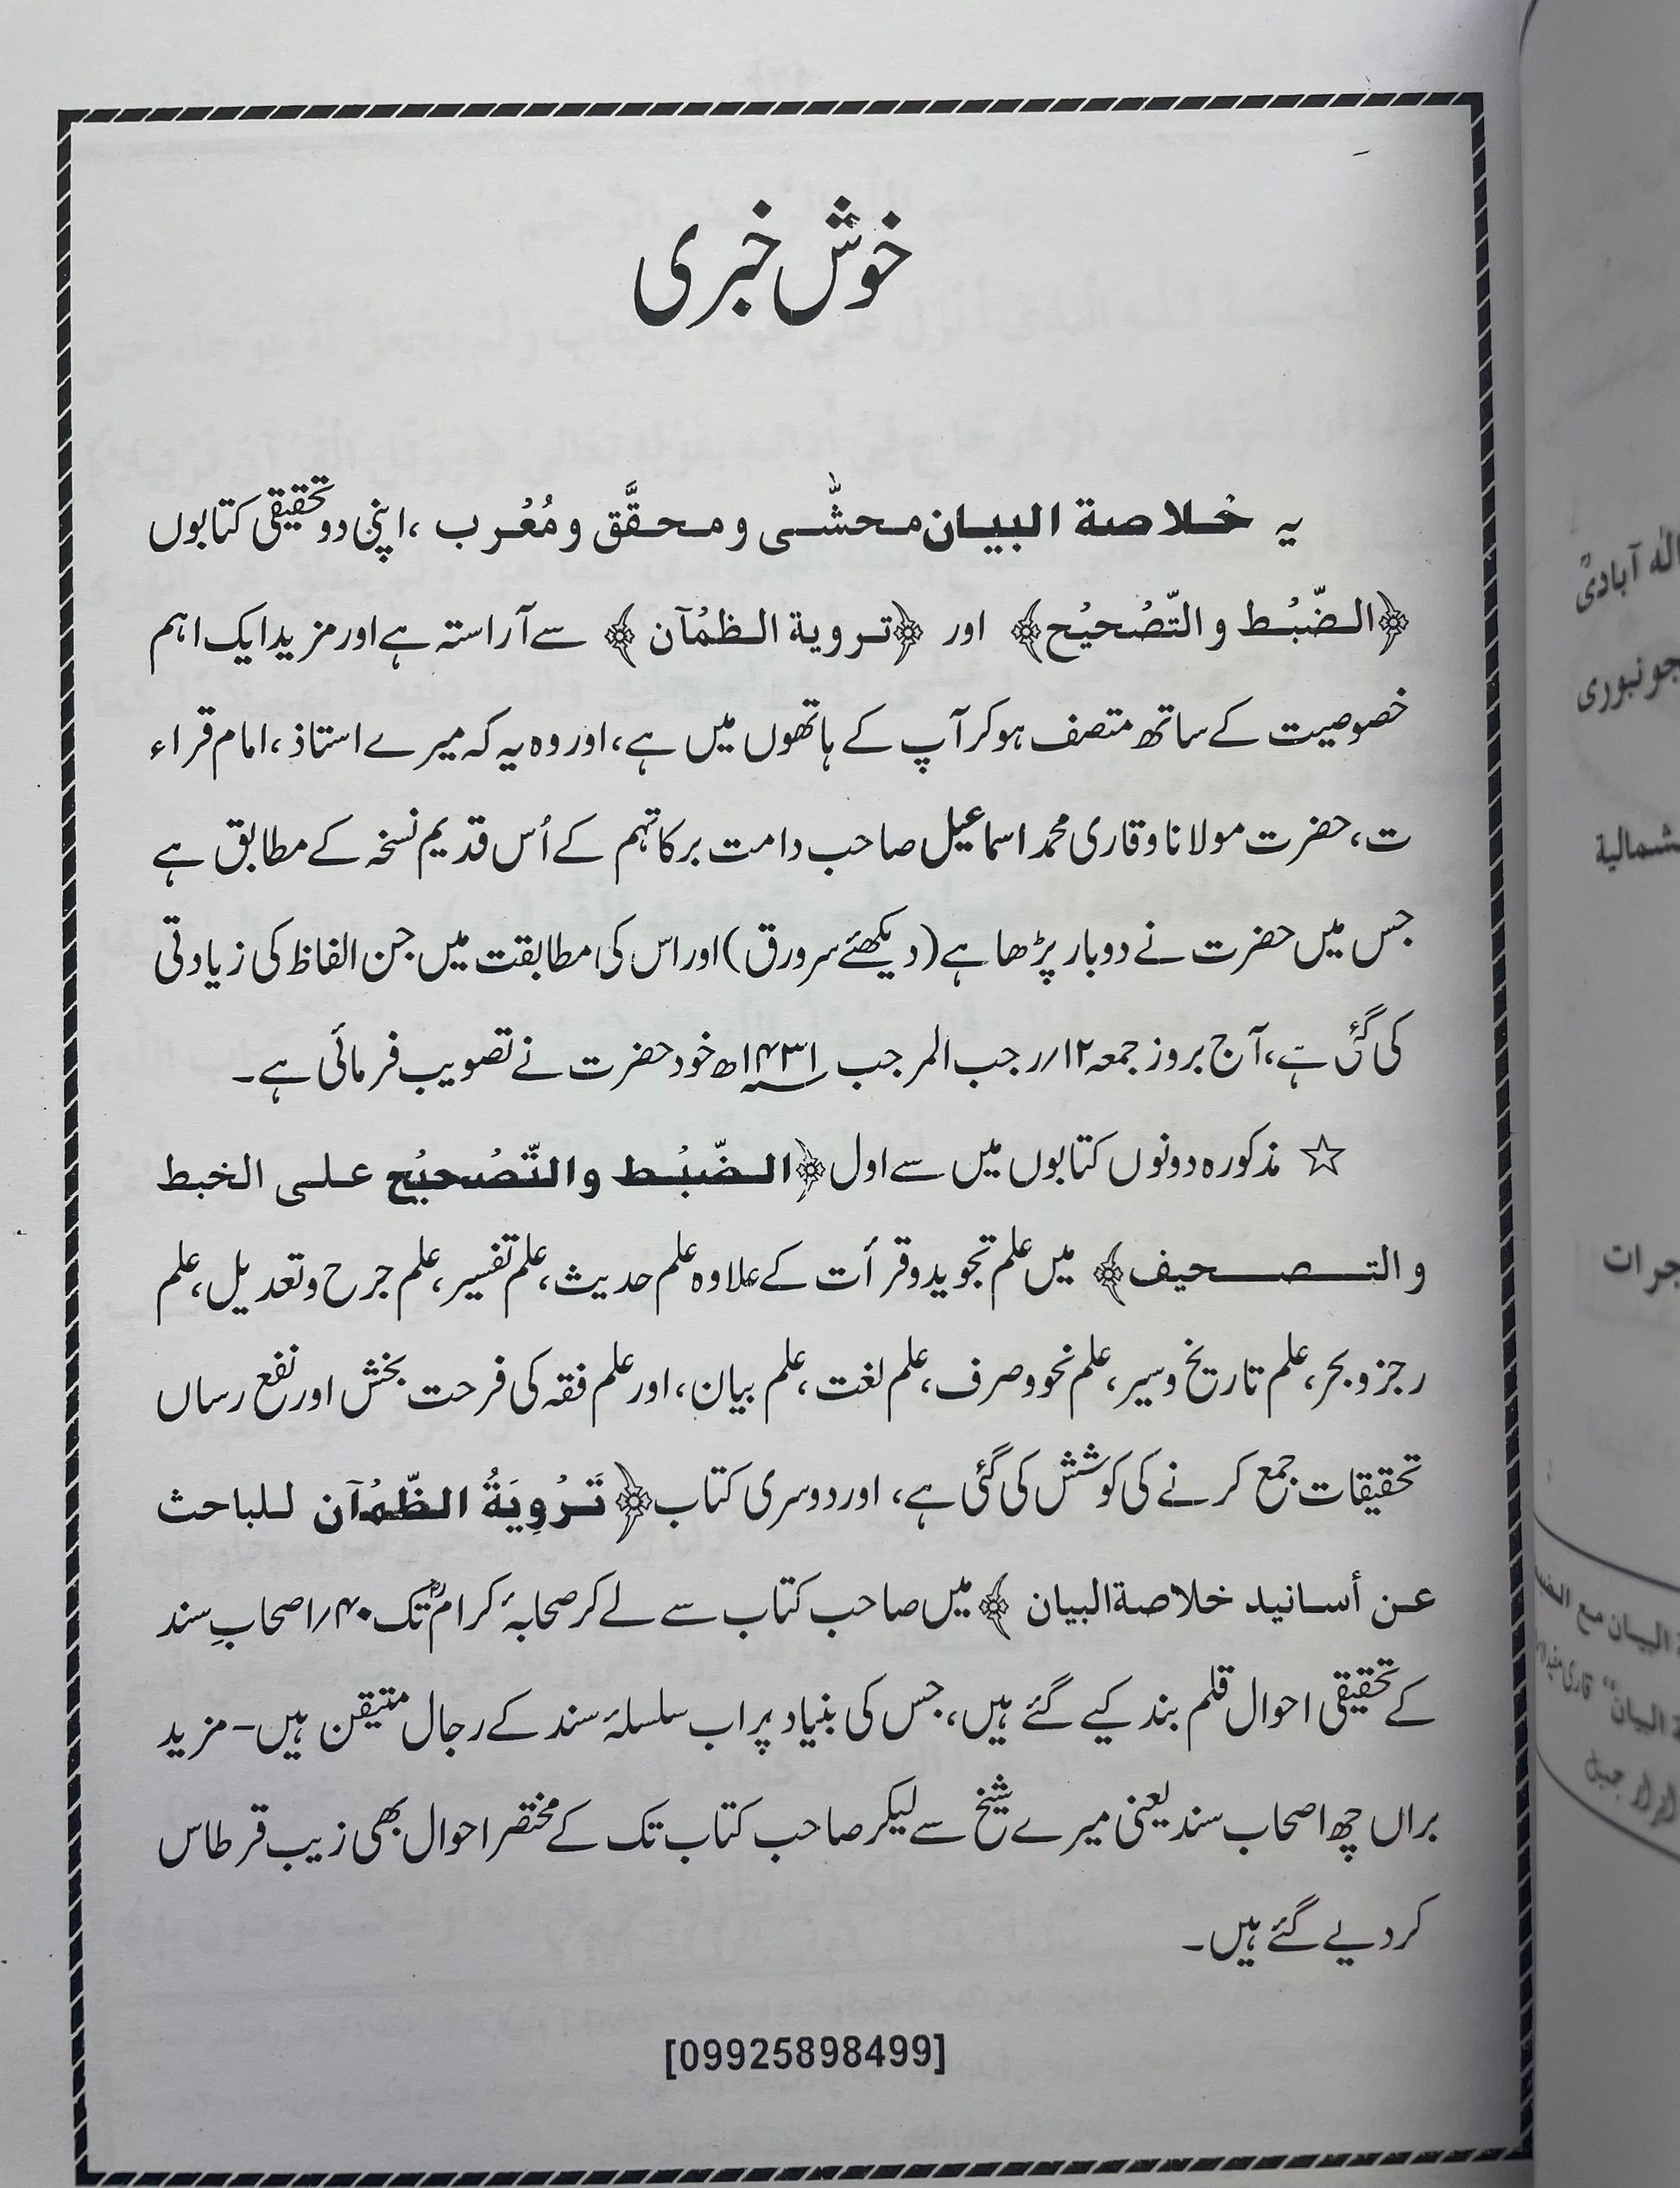 خوش خبری
یہ خلاصة البیان محشّٰی و محقَّق و مُعْرب ، اپنی دو تحقیقی کتابوں
﴿الضّبْط و التّصْحیْح﴾ اور ﴿ترویة الظمْآن﴾ سے آراستہ ہے اور مزید ایک اہم
خصوصیت کے ساتھ متصف ہوکر آپ کے ہاتھوں میں ہے، اور وہ یہ کہ میرے استاذ ، امام قراء
ت، حضرت مولانا وقاری محمد اسماعیل صاحب دامت برکاتہم کے اُس قدیم نسخہ کے مطابق ہے
جس میں حضرت نے دوبار پڑھا ہے (دیکھئے سرورق) اور اس کی مطابقت میں جن الفاظ کی زیادتی
کی گئی ہے، آج بروز جمعہ ۱۲/رجب المرجب ۱۴۳۱ھ خود حضرت نے تصویب فرمائی ہے۔
☆ مذکورہ دونوں کتابوں میں سے اول ﴿الضّبْط والتّصْحیْح علی الخبط
و التصحیف﴾ میں علم تجوید وقرأت کے علاوہ علم حدیث، علم تفسیر، علم جرح وتعدیل، علم
رجز وبحر، علم تاریخ وسیر، علم نحو وصرف، علم لغت، علم بیان، اور علم فقہ کی فرحت بخش اور نفع رساں
تحقیقات جمع کرنے کی کوشش کی گئی ہے، اور دوسری کتاب ﴿تَرْوِیَةُ الظّمْآن للباحث
عن أسانید خلاصةالبیان ﴾ میں صاحب کتاب سے لے کر صحابۂ کرامؓ تک ۴۰/اصحابِ سند
کے تحقیقی احوال قلم بند کیے گئے ہیں، جس کی بنیاد پر اب سلسلۂ سند کے رجال متیقن ہیں- مزید
براں چھ اصحاب سند یعنی میرے شیخ سے لیکر صاحب کتاب تک کے مختصر احوال بھی زیب قرطاس
کردیے گئے ہیں۔
[09925898499]
الٰہ آبادیؒ
جونپوری
شمالیة
جرات
البیان مع
البیان" قاری
جمیل